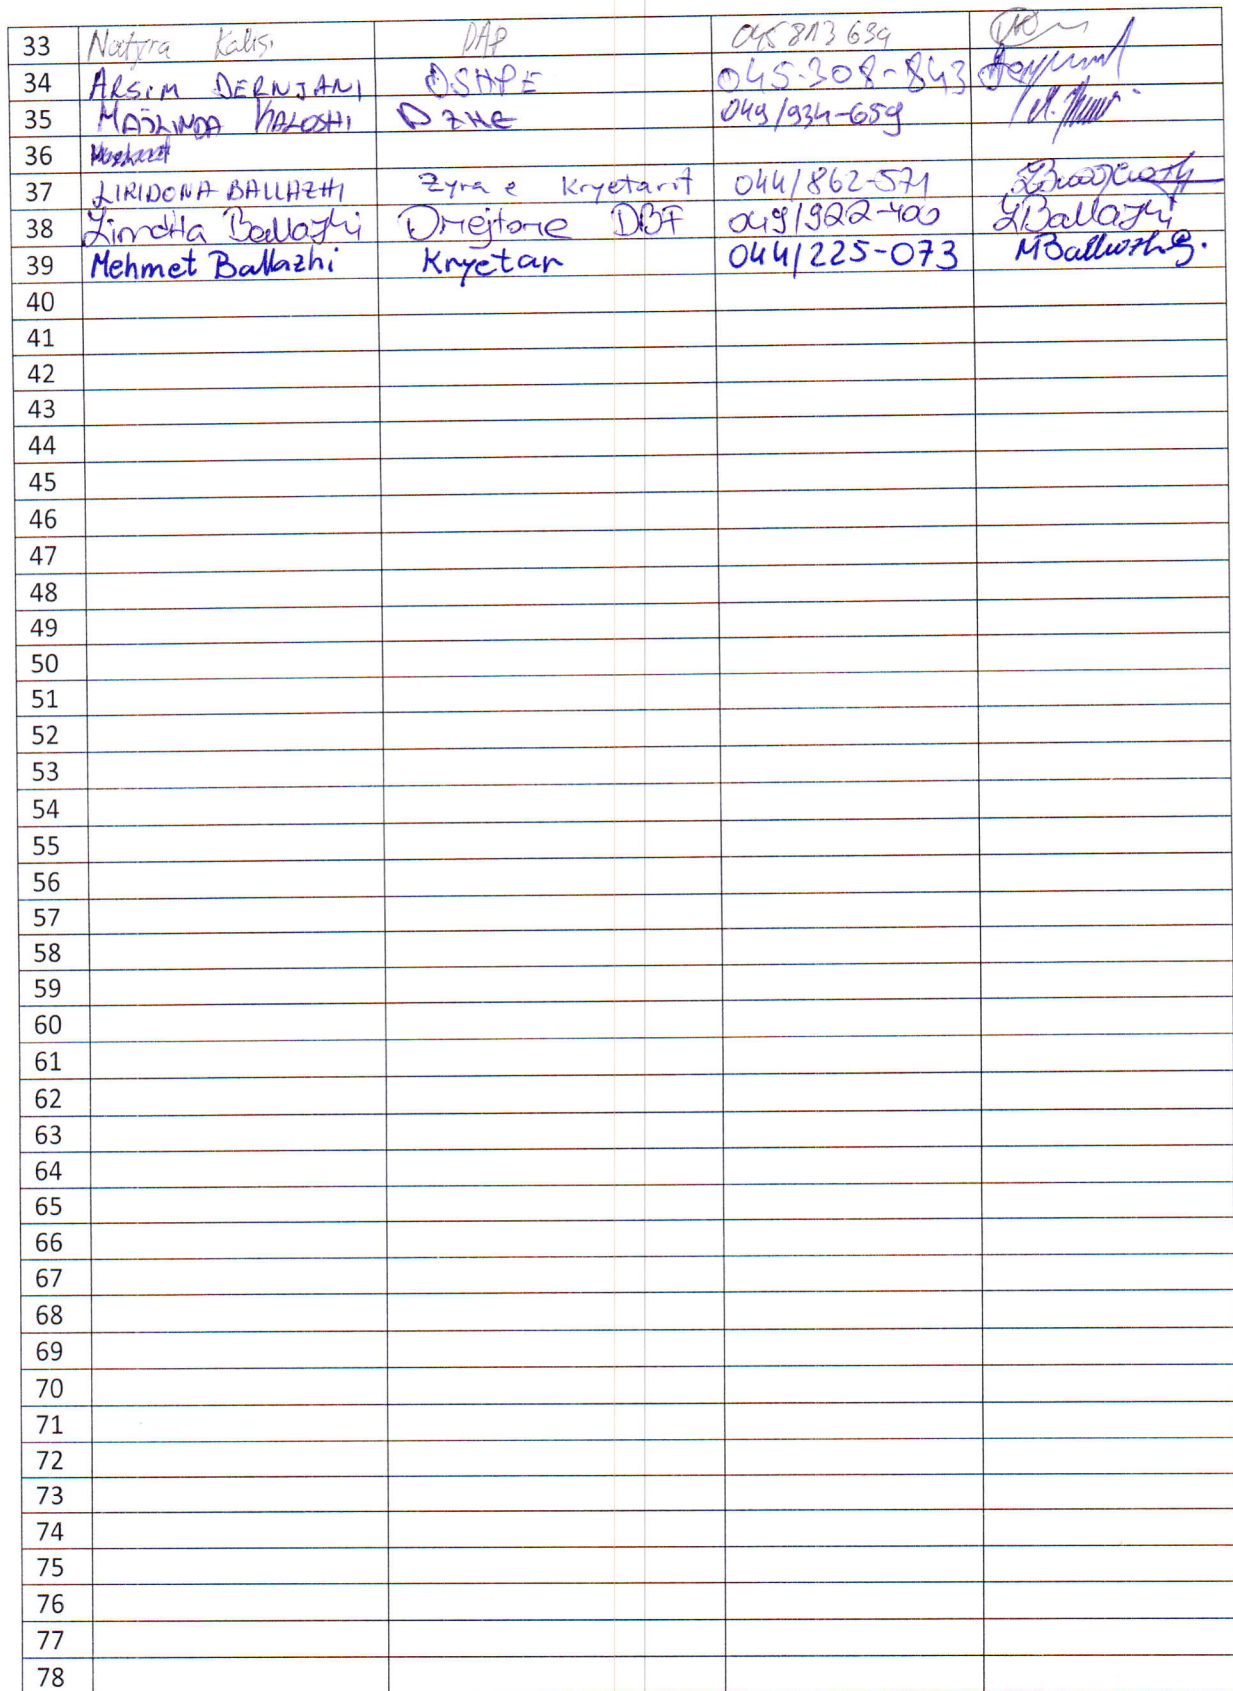 33 Natyra Kaliqi DAP 045 813 639
34 ARSIM DERNJANI DSHPE 045-308-843
35 MAJLINDA KALOSHI DZHE 049/934-659
36
37 LIRIDONA BALLAZHI Zyra e Kryetarit 044/862-571
38 Limdita Ballazhi Drejtore DBF 049/922-400 LBallazhi
39 Mehmet Ballazhi Kryetar 044/225-073 MBallazhi
40
41
42
43
44
45
46
47
48
49
50
51
52
53
54
55
56
57
58
59
60
61
62
63
64
65
66
67
68
69
70
71
72
73
74
75
76
77
78